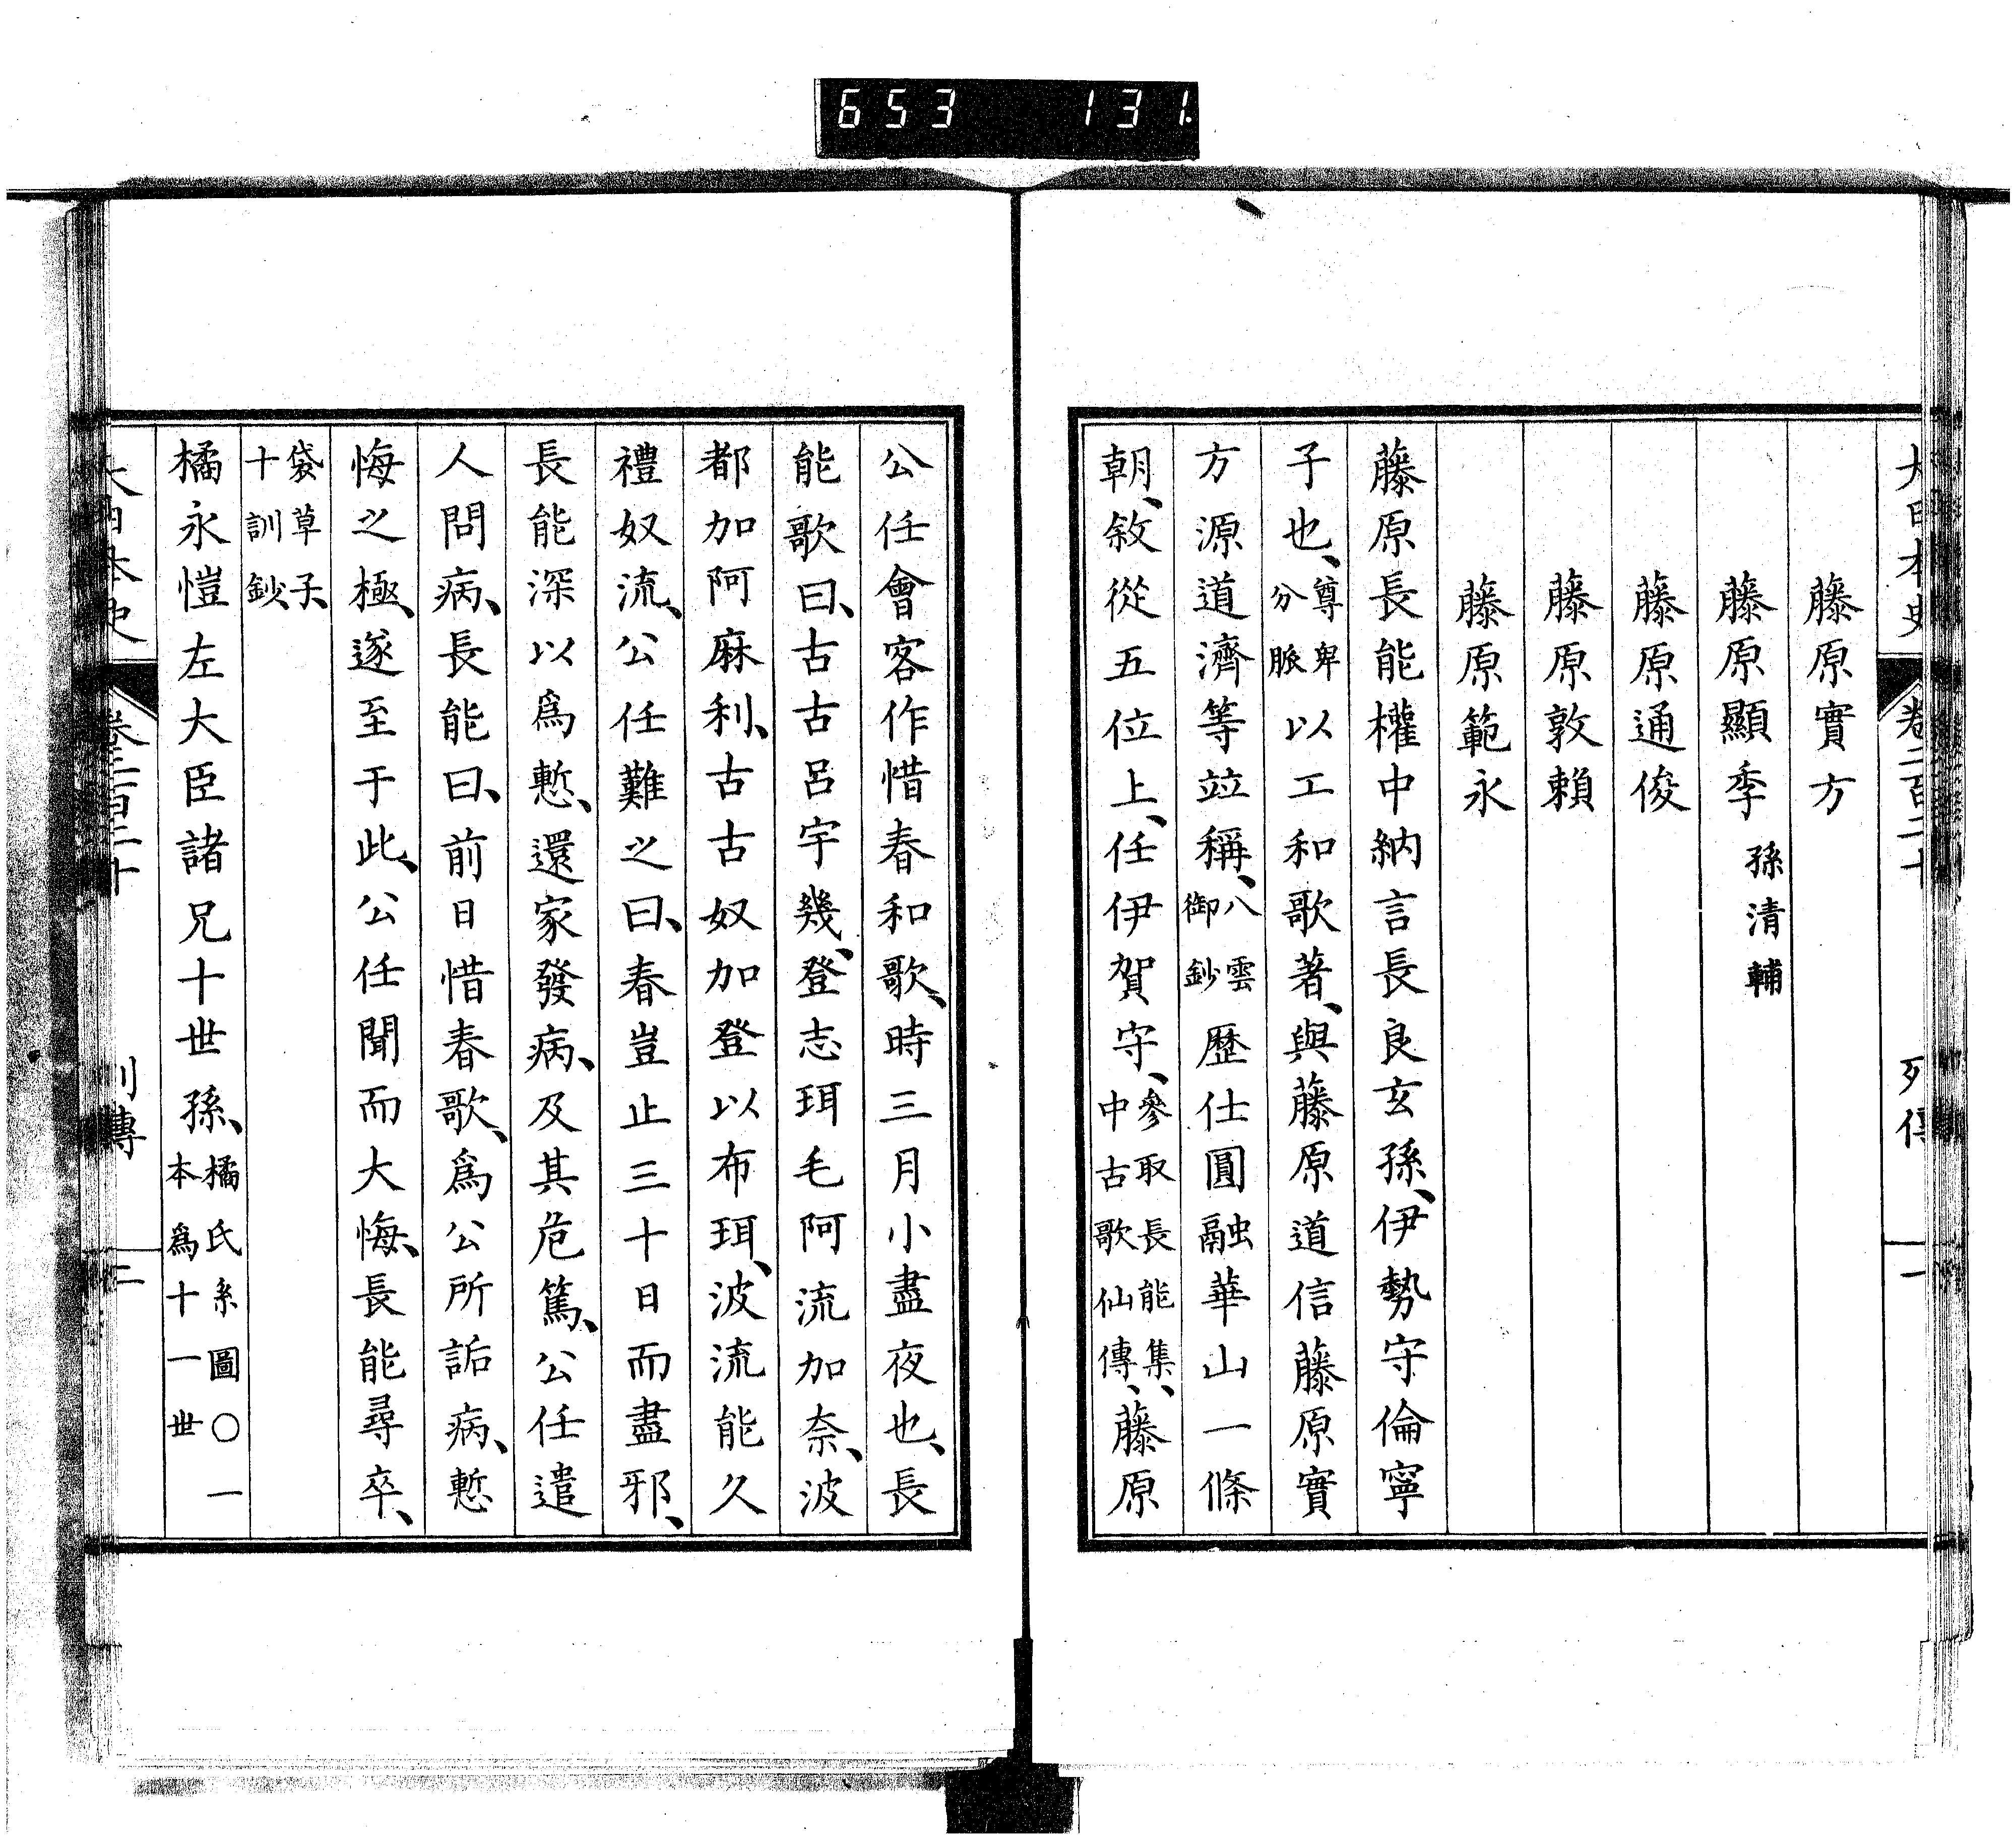 653 131
大日本史 卷二百二十 列傳 一
藤原實方
藤原顯季 孫清輔
藤原通俊
藤原敦賴
藤原範永
藤原長能權中納言長良玄孫、伊勢守倫寧
子也、尊卑分脈以工和歌著、與藤原道信藤原實
方源道濟等竝稱、八雲御鈔歷仕圓融華山一條
朝、敘從五位上、任伊賀守、參取長能集、中古歌仙傳、藤原
公任會客作惜春和歌、時三月小盡夜也、長
能歌曰、古古呂宇幾、登志珥毛阿流加奈、波
都加阿麻利、古古奴加登以布珥、波流能久
禮奴流、公任難之曰、春豈止三十日而盡邪、
長能深以爲慙、還家發病、及其危篤、公任遣
人問病、長能曰、前日惜春歌、爲公所詬病、慙
悔之極、遂至于此、公任聞而大悔、長能尋卒、
袋草子、十訓鈔、
橘永愷左大臣諸兄十世孫、橘氏系圖〇一本爲十一世
大日本史 卷二百二十 列傳 二